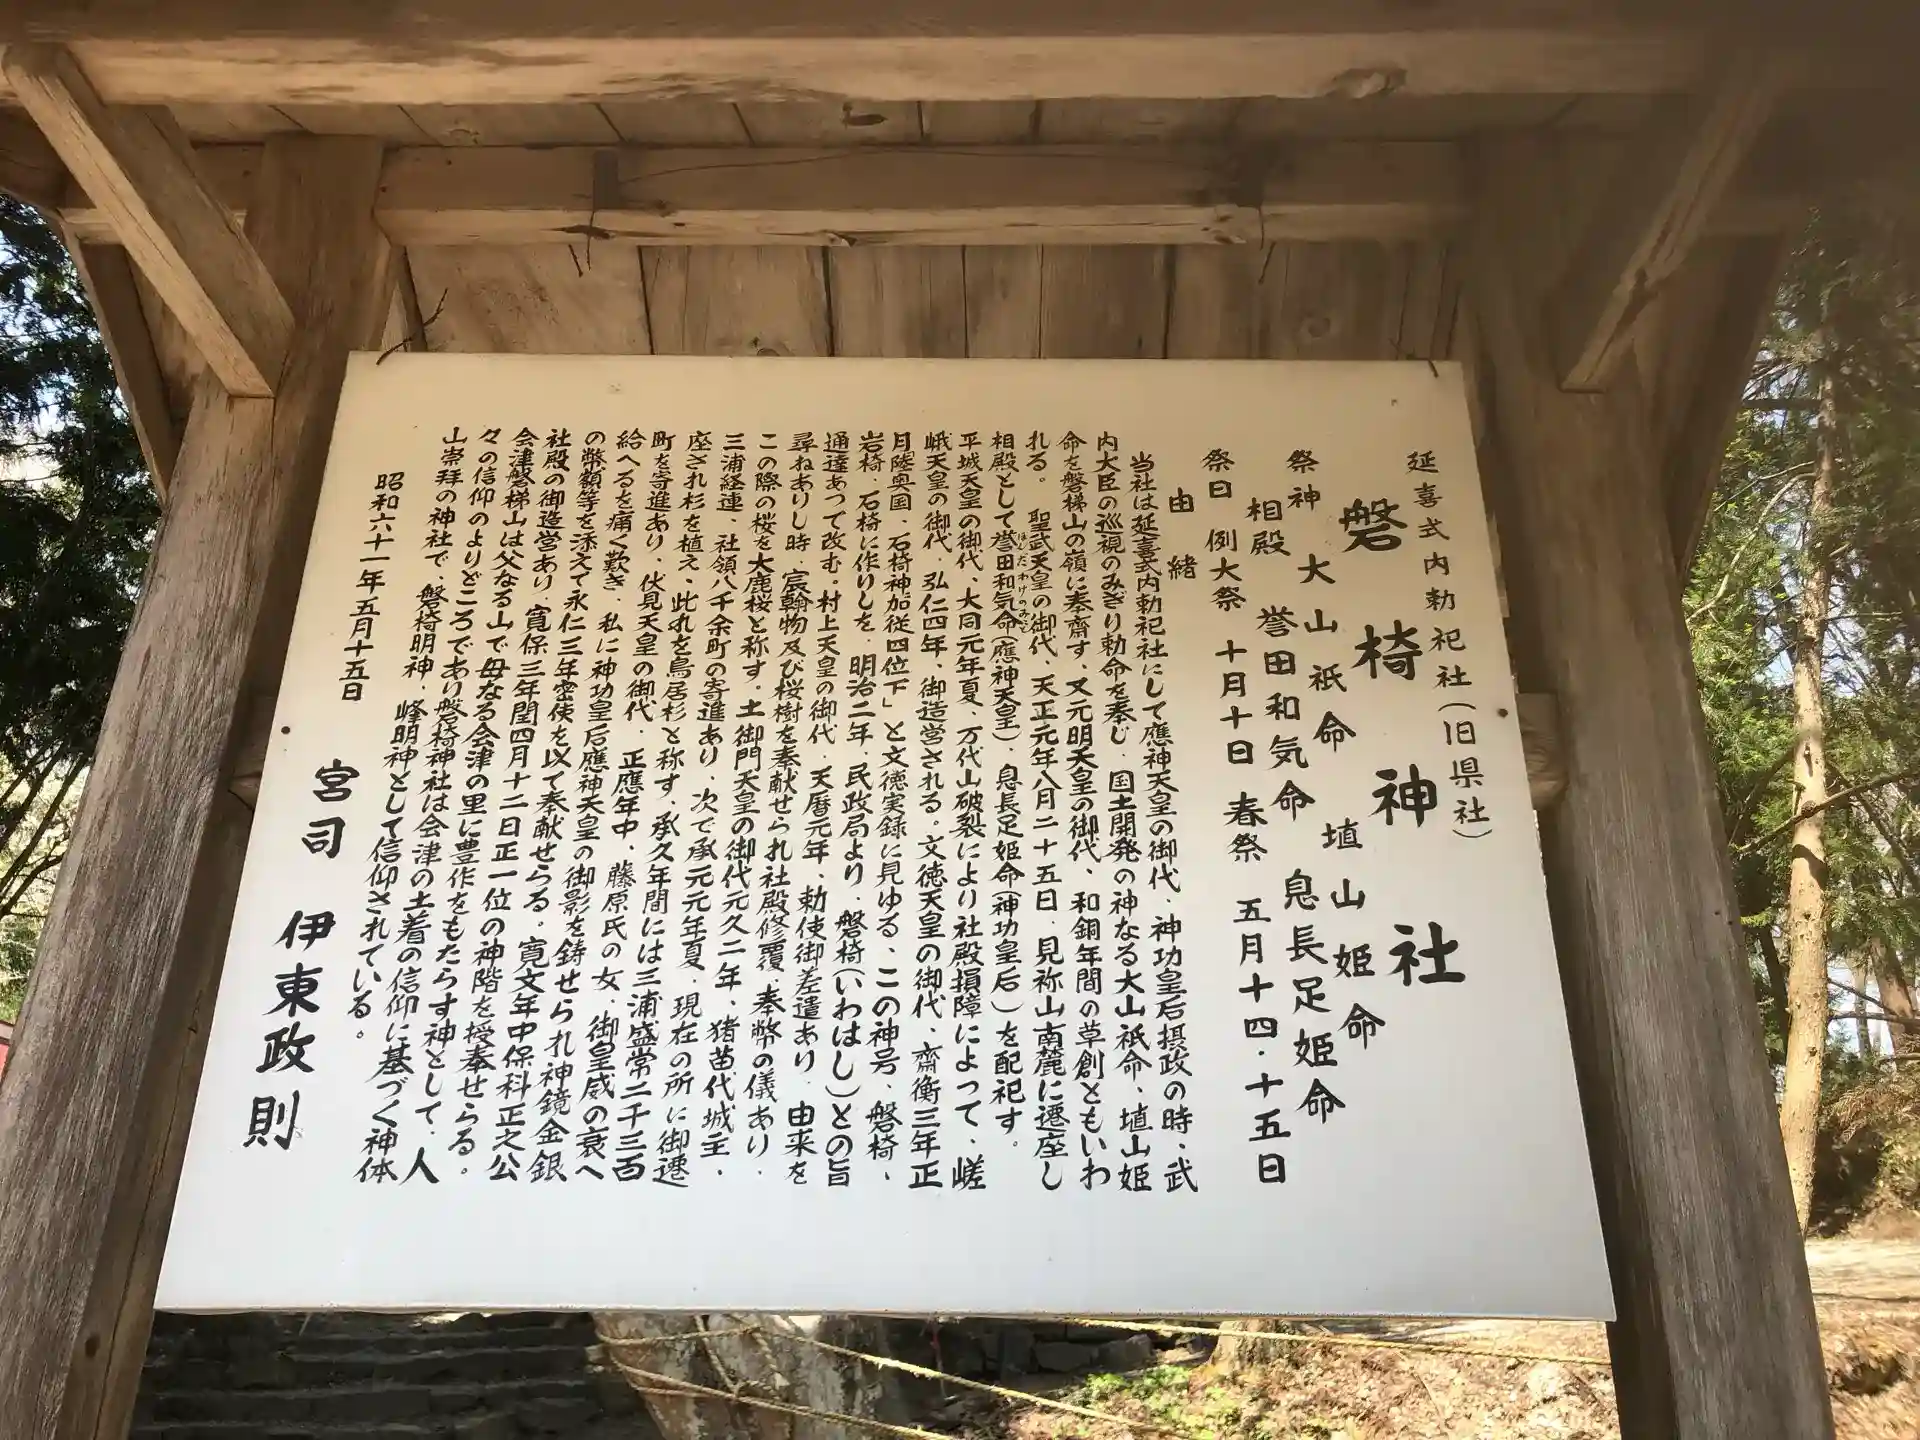 延喜式内勅祀社(旧県社)
磐椅神社
祭神 大山祇命 埴山姫命
相殿 誉田和気命 息長足姫命
祭日 例大祭 十月十日 春祭 五月十四・十五日
由緒
当社は延喜式内勅祀社にして應神天皇の御代、神功皇后摂政の時、武
内大臣の巡視のみぎり勅命を奉じ、国土開発の神なる大山祇命、埴山姫
命を磐梯山の嶺に奉齋す、又元明天皇の御代、和銅年間の草創ともいわ
れる。 聖武天皇の御代、天正元年八月二十五日、見祢山南麓に遷座し
相殿として誉田和気命(應神天皇)、息長足姫命(神功皇后)を配祀す。
ほんだわけのみこと
平城天皇の御代、大同元年夏、万代山破裂により社殿損障によって、嵯
峨天皇の御代、弘仁四年、御造営される。文徳天皇の御代、齋衡三年正
月陸奥国、石椅神加従四位下」と文徳実録に見ゆる、この神号、磐椅、
岩椅、石椅に作りしを、明治二年、民政局より、磐椅(いわはし)との旨
通達あつて改む。村上天皇の御代、天暦元年、勅使御差遣あり、由来を
尋ねありし時、宸翰物及び桜樹を奉献せられ社殿修覆、奉幣の儀あり、
この際の桜を大鹿桜と称す。土御門天皇の御代元久二年、猪苗代城主、
三浦経連、社領八千余町の寄進あり、次で承元元年夏、現在の所に御遷
座され杉を植え、此れを鳥居杉と称す、承久年間には三浦盛常二千三百
町を寄進あり、伏見天皇の御代、正應年中、藤原氏の女、御皇威の衰へ
給へるを痛く歎き、私に神功皇后應神天皇の御影を鋳せられ神鏡金銀
の幣額等を添えて永仁三年密使を以て奉献せらる。寛文年中保科正之公
社殿の御造営あり、寛保三年閏四月十二日正一位の神階を授奉せらる。
会津磐梯山は父なる山で母なる会津の里に豊作をもたらす神として、人
々の信仰のよりどころであり磐椅神社は会津の土着の信仰に基づく神体
山崇拝の神社で、磐椅明神、峰明神として信仰されている。
昭和六十一年五月十五日
宮司 伊東政則